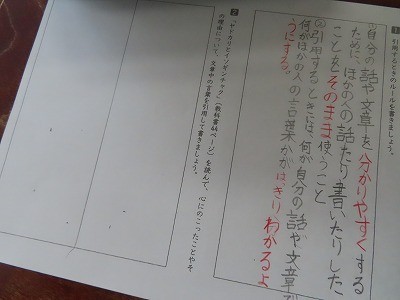 1 引用するときのルールを書きましょう。
①自分の話や文章を分かりやすくする
ために、ほかの人の話たり書いたりした
ことをそのまま使うこと
②引用するときには、何が自分の話や文章で
何がほかの人の言葉かがはっきりわかるよ
うにする。
2 「ヤドカリとイソギンチャク」（教科書44ページ）を読んで、心にのこったことやそ
の理由について、文章中の言葉を引用して書きましょう。